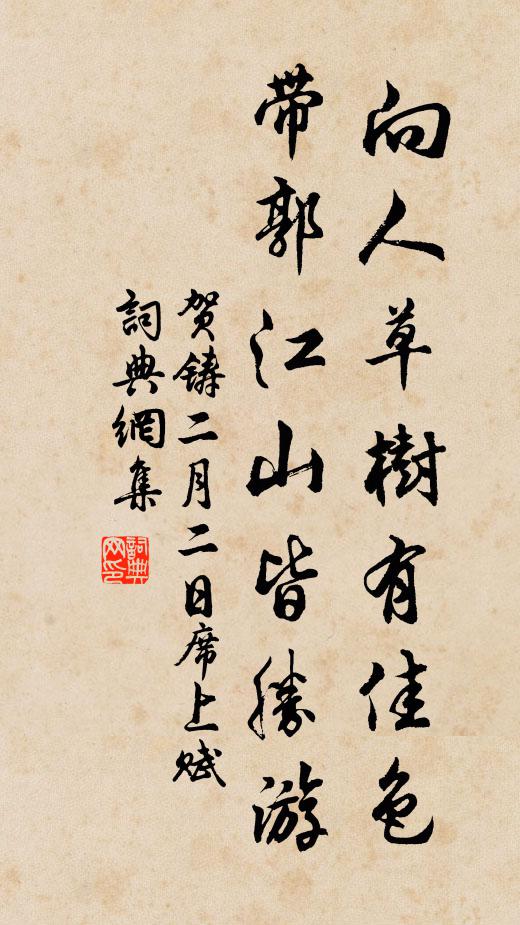 向人草樹有佳色
帶郭江山皆勝游
贺鑄二月二日席上賦
詞典網集
詞典网印